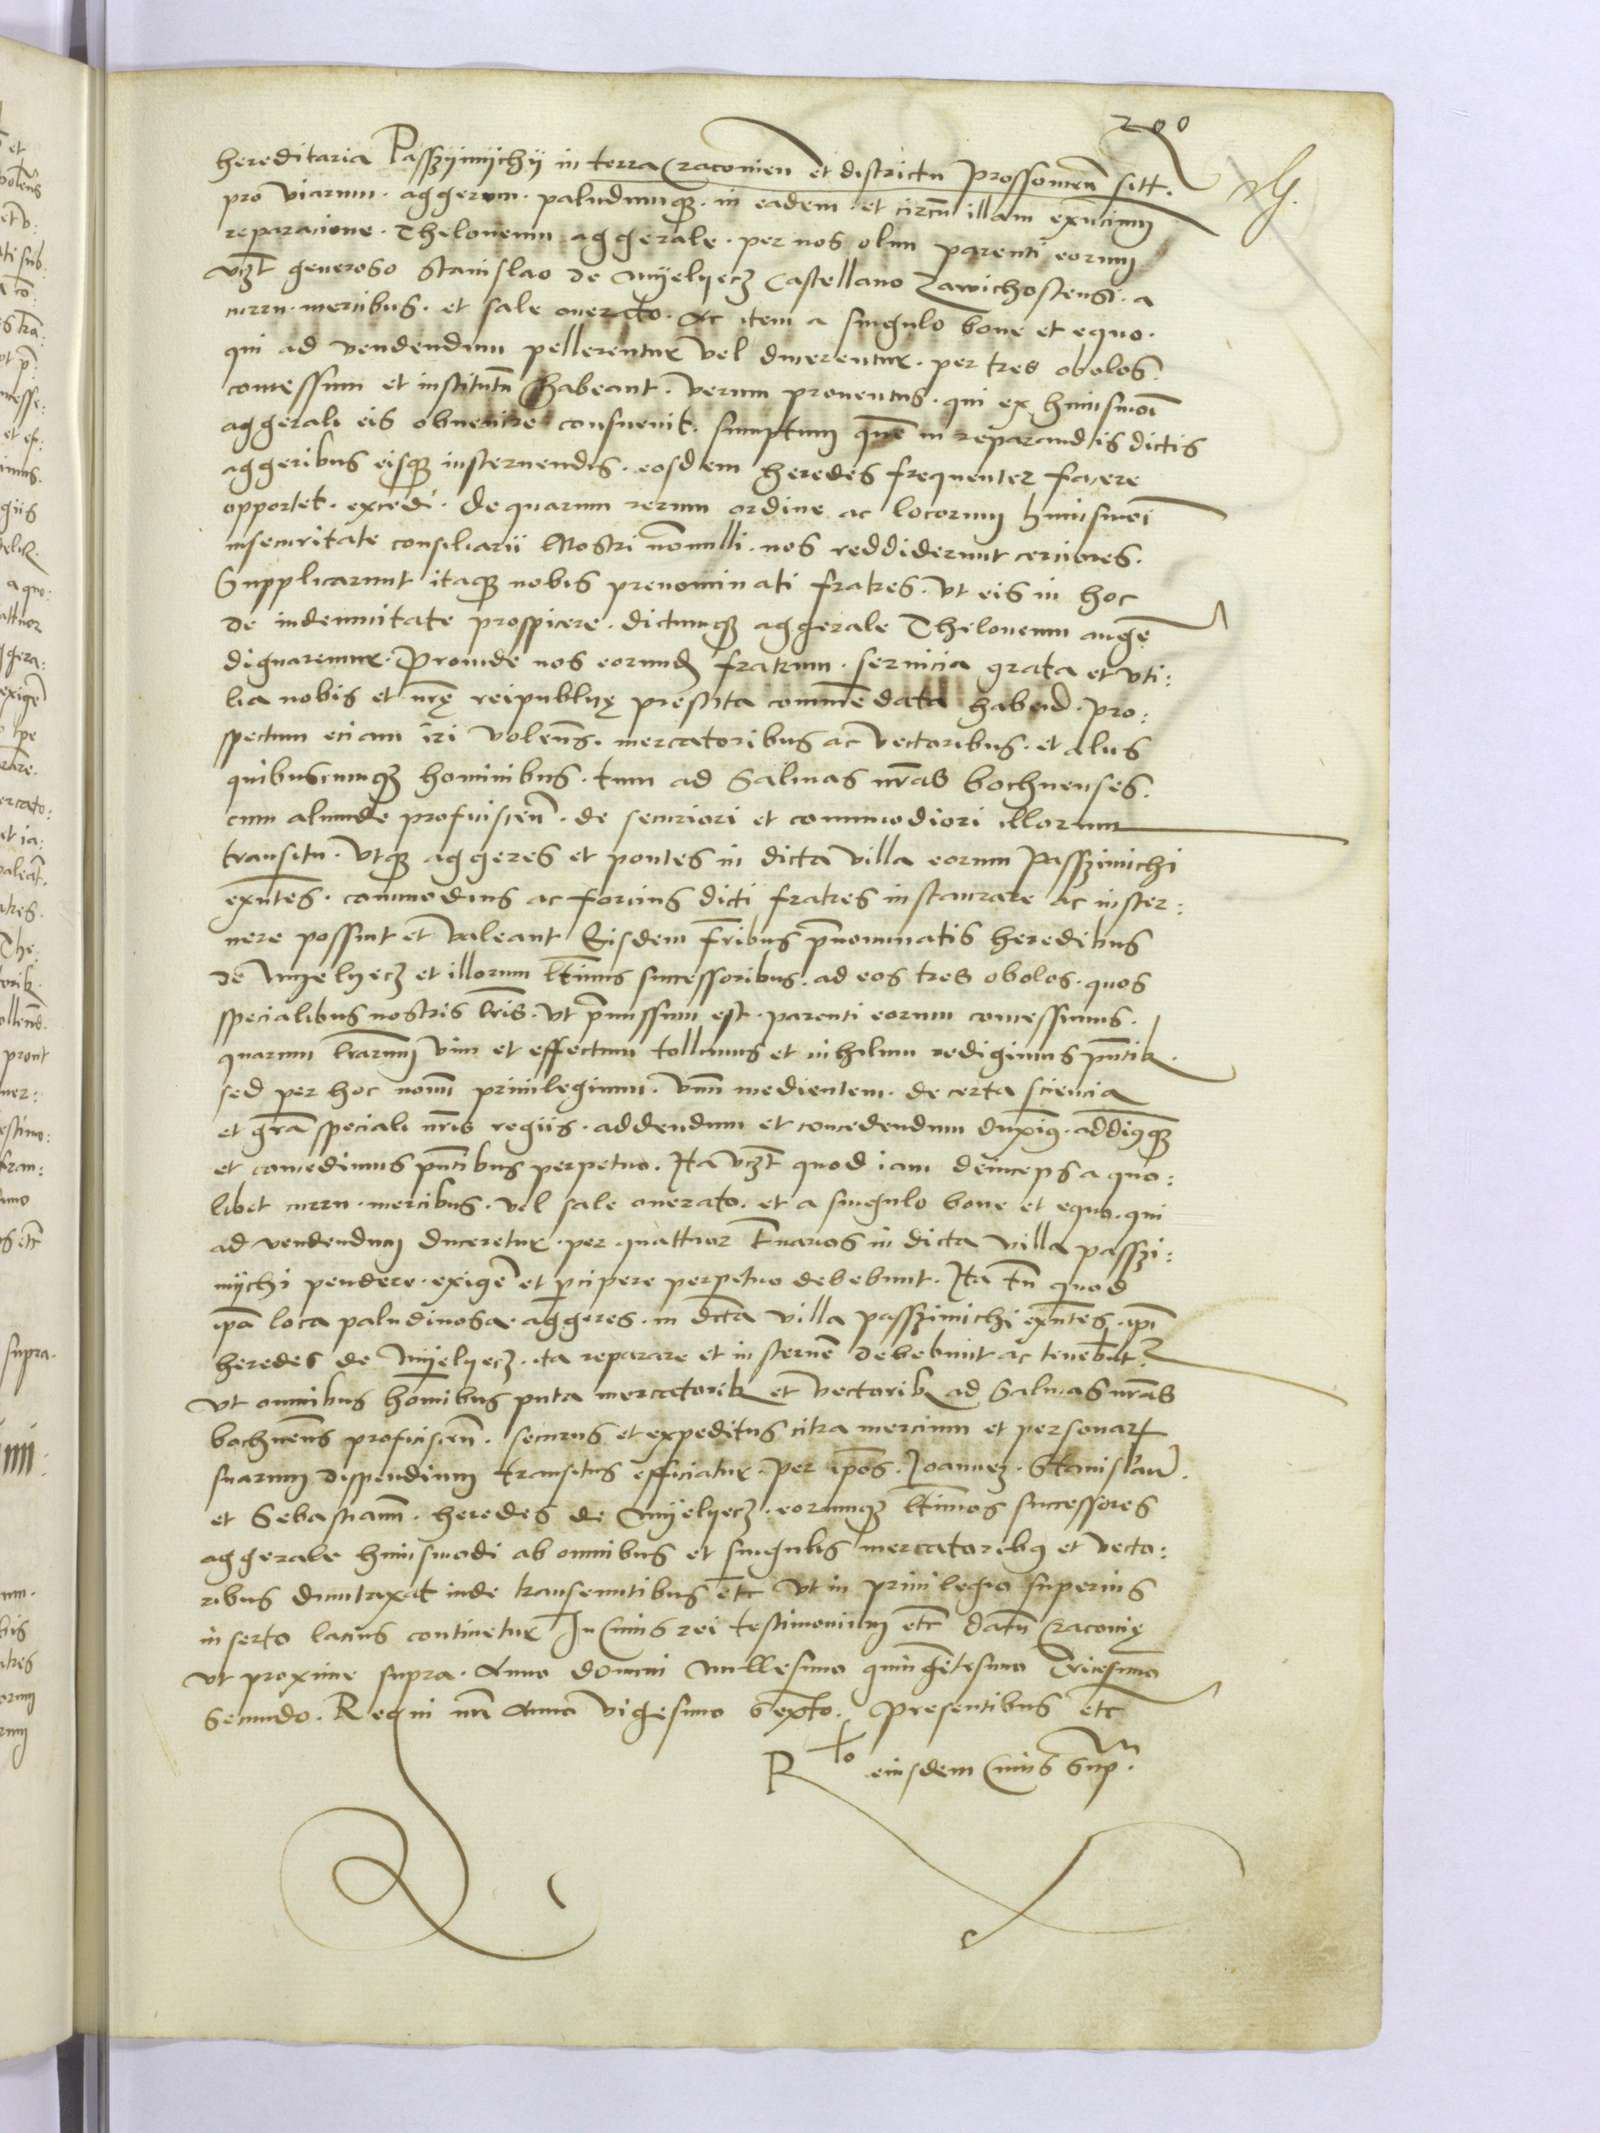 200
hereditaria Passzijmijchij in terra Cracovien et districtu Prossovien sitt.
pro viarum. aggerum. paludumque. in eadem. et circum illam exn̄cium
reparacione. Theloneum aggerale. per nos olim parenti eorum
vz̄t generoso Stanislao de Myelyecz Castellano Zawichostensi. a
curru. mercibus. et sale onerato. Ac item a singulo bove et equo.
qui ad vendendum pellerentur vel ducerentur. per tres obolos.
concessum et institutū habeant. Verum proventus. qui ex huiusmōi
aggerali eis obvenire consuevit. sumptum quē in reparandis dictis
aggeribus eisque insternendis. eosdem heredes frequenter facere
opportet. excedi. De quarum rerum ordine ac locorum huiusmōi
insecuritate consiliarii Nostri nōnulli. nos reddiderunt cerciores.
Supplicarunt itaque nobis prenominati fratres. Ut eis in hoc
de indemnitate prospicere. dictumque aggerale Theloneum augē
dignaremur. Proinde nos eorund fratrum. servicia grata et uti:
lia nobis et nrę reipublicę prestita commēdata habend. pro:
spectum eciam iri volens. mercatoribus ac vectoribus. et aliis
quibuscumque hominibus. tum ad Salinas nr̄as Bochnenses.
cum aliunde proficiscen̄. de securiori et commodiori illorum
transitu. Utque aggeres et pontes in dicta villa eorum Passzimichi
exn̄tes. commodius ac forcius dicti fratres instaurare ac inster:
nere possint et valeant Eisdem fr̄ibus p̄nominatis heredibus
de Myelyecz et illorum ltīmis successoribus. ad eos tres obolos. quos
specialibus nostris lr̄is. ut p̄missum est. parenti eorum concessimus.
quarum lr̄arum vim et effectum tollimus et in hilum redigimus pn̄tib.
sed per hoc novū privilegium. Vim medientem. de certa sciencia
et gr̄a speciali nr̄is regiis. addendum et concedendum duxim9. addim9que
et concedimus pn̄tibus perpetuo. Ita vz̄t quod iam deinceps a quo:
libet curru. mercibus. vel sale onerato. et a singulo bove et equo. qui
ad vendendum duceretur. per quattuor t̄narios in dicta villa passzi:
mychi pendere. exigē et p̄cipere perpetuo debebunt. Ita tn̄ quod
ip̄a loca paludinosa. aggeres. in dcta villa passzimichi exn̄tes. ip̄i
heredes de Myelyecz. ita reparare et insternē debebunt ac tenebūt.
Ut omnibus hoīnibus puta mercatorib et vectorib ad Salinas nr̄as
bochnēns proficiscen̄. securus et expeditus citra mercium et personar
suarum dispendium transitus efficiatur. Per ip̄os. Joannez. Stanislau.
et Sebastianū. heredes de Myelyecz. eorumque ltīmos successores
aggerale huiusmodi ab omnibus et singulis mercatorib9 et vecto:
ribus dumtaxat inde transeuntibus etc Ut in privilegio superius
inserto lacius continetur In Cuius rei testimonium etc datū Cracovię
ut proxime supra. Anno domini Millesimo quingētesimo Tricesimo
Secundo. Regni nr̄i Anno vigesimo Sexto. Presentibus etc
Rlo eiusdem Cuius Sup.